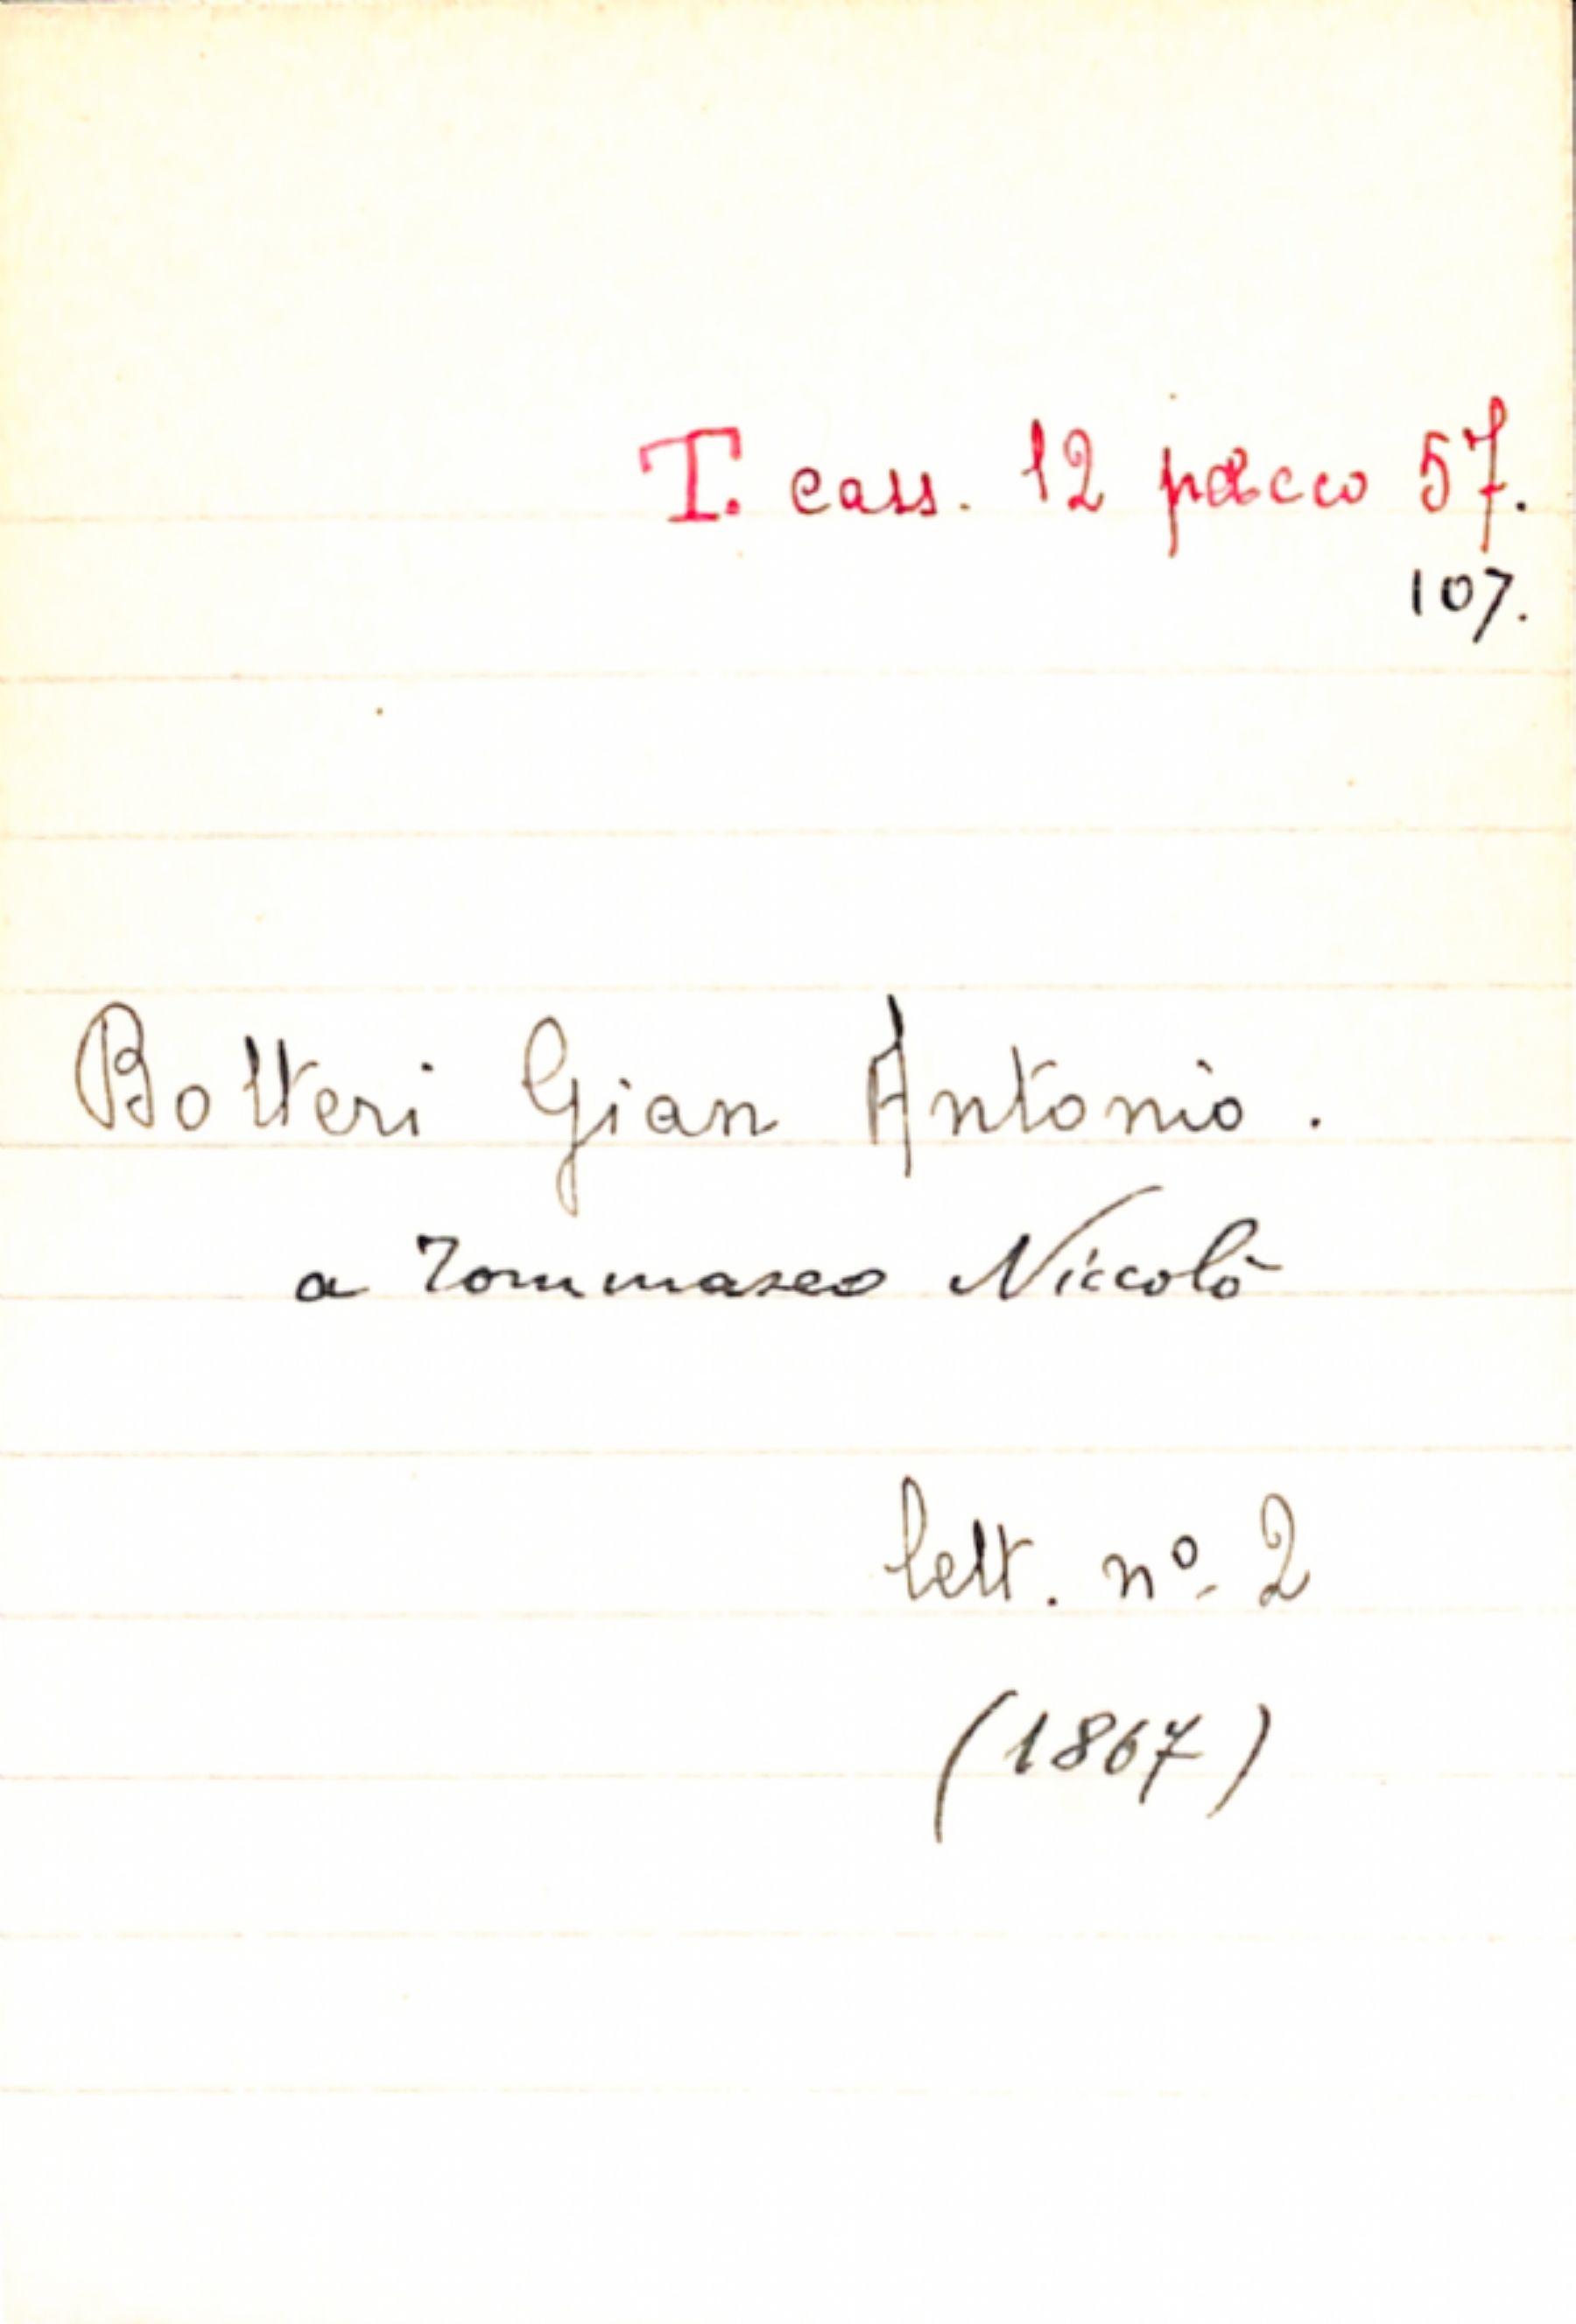 T. cass. 12 pacco 57.
107.
Botteri Gian Antonio.
a Tommaseo Niccolò
lett. nº 2
(1867)